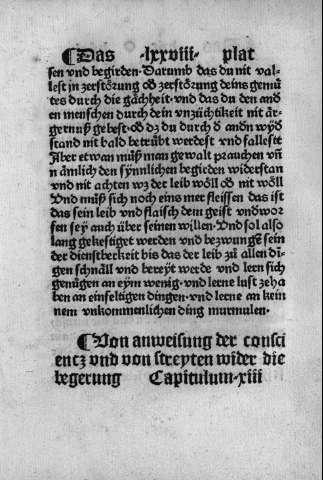 ¶Das ·lxxviii· plat
sen vnd begirden. Darumb das du nit val-
lest in zerstörung oð zerstörung deins gemü
tes durch die gächheit · vnd das du den and
en menschen durch dein vnzüchtikeit nit är-
gernuß gebest · oð dz du durch ð andn wyð
stand nit bald betrübt werdest vnd fallestt
Aber etwan můß man gewalt prauchen vñ
n ämlich den synnlichen begirden widerstan
vnd nit achten wz der leib wöll oð nit wöll
Vnd můß sich noch eins mer fleissen das ist
das sein leib vnd flaisch dem geist vndwor
fen sey auch über seinen willen · Vnd sol also
lang gekestiget werden vnd bezwungē sein
der dienstberkeit bis das der leib zů allen di-
gen schnäll vnd bereyt werde vnd lern sich
genügen an eym wenig · vnd lerne lust zeha
ben an einfeltigen dingen · vnd lerne an kein
nem vnkommenlichen ding murmulen ·
¶Von anweisung der consci
encz vnd von streyten wider die
begerung Capitulum · xiii